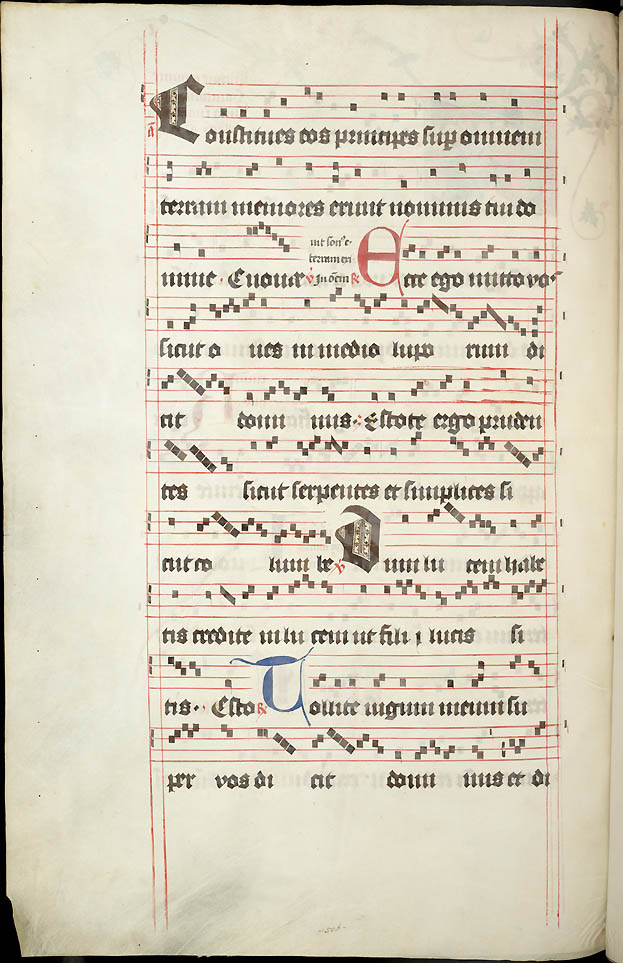 a Constitues eos principes sup omnem
terram memores erunt nominis tui do
mine · Euouae v In oem terram en iut son9 e r Ecce ego mitto vos
sicut o ues in medio lupo rum di
cit domi nus · Estote ergo pruden
tes sicut serpentes et simplices si
cut co lum be v Dum lu cem habe
tis credite in lu cem ut fili i lucis si
tis · Esto r Tollite iugum meum su
per vos di cit domi nus et di